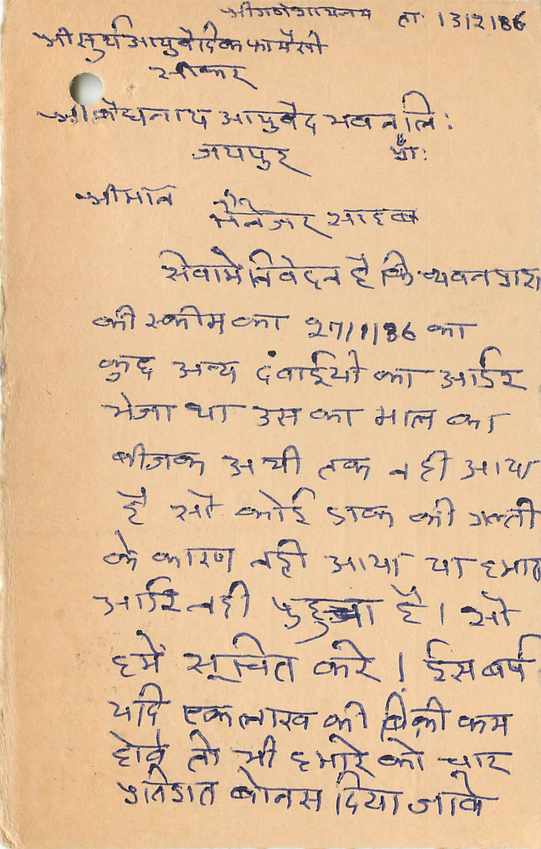 श्रीगणेशायनम ता. 13/2/86
श्री सुर्य आयुर्वेदिक फार्मेसी
सीकर
श्री बैद्यनाथ आयुर्वेद भवन लि:
जयपुर प्रा:
श्रीमान मैनेजर साहब
सेवामे निवेदन है कि च्यवनप्राश
की स्कीम का 27/1/86 का
कुछ अन्य दवाईयो का आर्डर
भेजा था उस का माल का
बीजक अभी तक नही आया
है सो कोई डाक की गल्ती
के कारण नही आया या हमारा
आर्डर नही पहुचा है। सो
हमें सूचित करे। ईस बर्ष
यदि एक लाख की बिक्री कम
होवे तो भी हमारे को चार
प्रतिशत बोनस दिया जावे